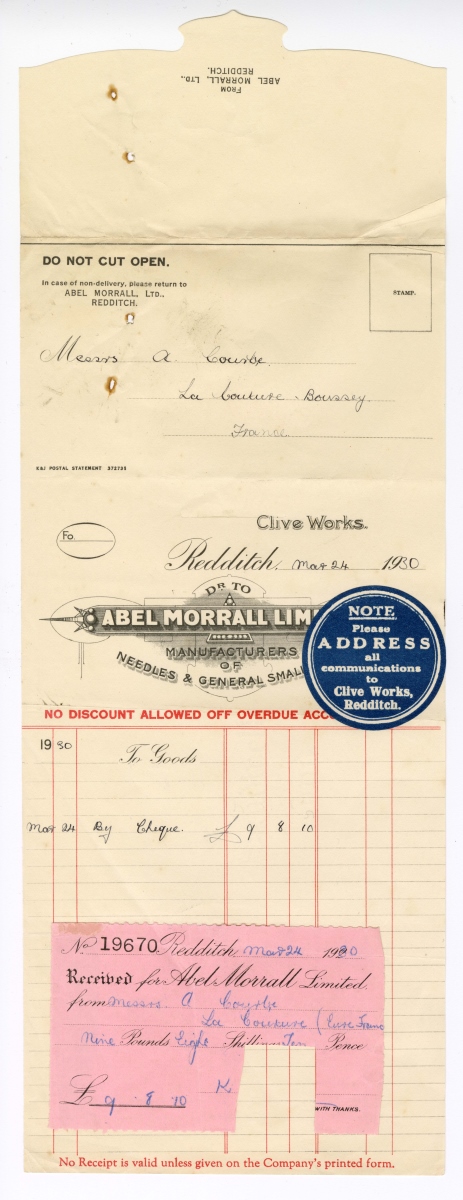 From
ABEL MORRALL, LTD.,
REDDITCH.
DO NOT CUT OPEN.
In case of non-delivery, please return to
ABEL MORRALL, LTD.,
REDDITCH.
STAMP.
Messrs A. Courbe.
La Couture-Boussey.
France.
E&J POSTAL STATEMENT 372725
Clive Works.
Fo.
Redditch, Mar 24 1930
DR TO
ABEL MORRALL LIM
MANUFACTURERS
OF
NEEDLES & GENERAL SMALL
NOTE.
Please
ADDRESS
all
communications
to
Clive Works,
Redditch.
NO DISCOUNT ALLOWED OFF OVERDUE ACC
1930
To Goods
Mar 24 By Cheque. £ 9 8 10
No 19670 Redditch, Mar 24 1930
Received for Abel Morrall Limited.
from Messrs A Courbe
La Couture (Eure France
Nine Pounds Eight Shillings Ten Pence
£ 9 . 8 . 10
WITH THANKS.
No Receipt is valid unless given on the Company's printed form.